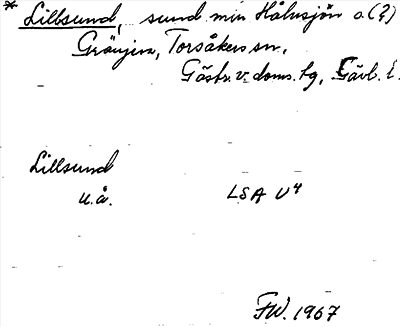 * Lillsund, sund min Hålnsjön o. (?)
Gränjen, Torsåkers sn,
Gästr. v. doms. tg, Gävl. l.
Lillsund
u.å. LSA U4
FW. 1967